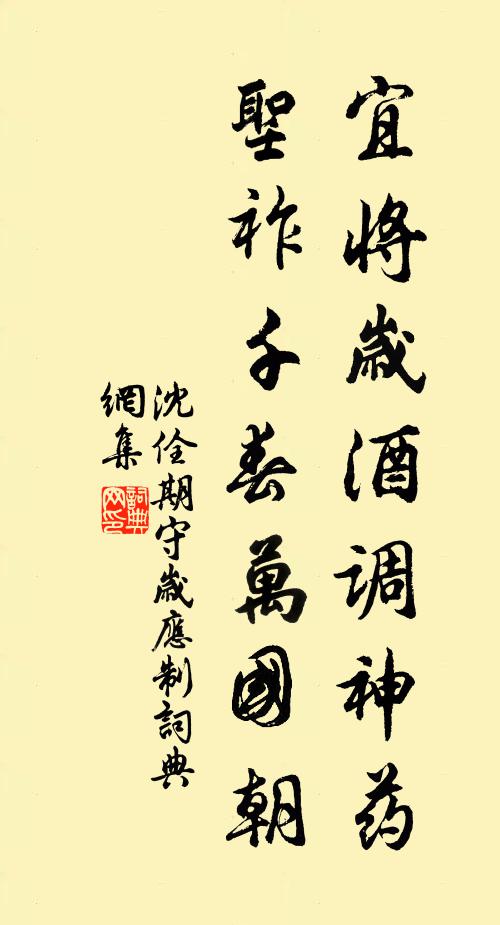 宜將歲酒调神药
聖祚千春萬國朝
沈佺期守歲應制詞典
網集
詞典
网印